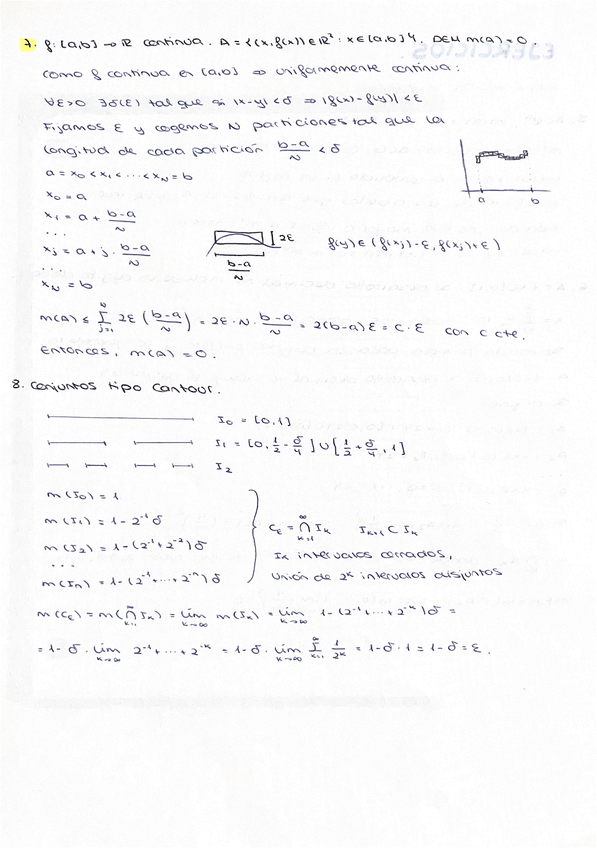 7. f: [a,b] → ℝ continua. A = {(x, f(x)) ∈ ℝ² : x ∈ [a,b]}. DEM m(A) = 0.
Como f continua en [a,b] ⇒ uniformemente continua:
∀ε>0 ∃δ(ε) tal que si |x-y| < δ ⇒ |f(x)-f(y)| < ε
Fijamos ε y cogemos N particiones tal que la
longitud de cada partición (b-a)/N < δ
a = x₀ < x₁ < ... < x_N = b
x₀ = a
x₁ = a + (b-a)/N
...
x_j = a + j · (b-a)/N
...
x_N = b
2ε
(b-a)/N
f(y) ∈ (f(x_j) - ε, f(x_j) + ε)
a b
m(A) ≤ Σ_{j=1}^{N} 2ε ((b-a)/N) = 2ε · N · (b-a)/N = 2(b-a)ε = C · ε con C cte.
Entonces, m(A) = 0.
8. Conjuntos tipo Cantour.
I₀ = [0,1]
I₁ = [0, 1/2 - δ/4] ∪ [1/2 + δ/4, 1]
I₂
m(I₀) = 1
m(I₁) = 1 - 2⁻¹δ
m(I₂) = 1 - (2⁻¹ + 2⁻²)δ
...
m(I_n) = 1 - (2⁻¹ + ... + 2⁻ⁿ)δ
C_ε = ⋂_{k=1}^{∞} I_k I_{k+1} ⊂ I_k
I_k intervalos cerrados,
unión de 2ᵏ intervalos disjuntos
m(C_ε) = m(⋂_{k=1}^{∞} I_k) = lim_{k→∞} m(I_k) = lim_{k→∞} 1 - (2⁻¹ + ... + 2⁻ᵏ)δ =
= 1 - δ · lim_{k→∞} 2⁻¹ + ... + 2⁻ᵏ = 1 - δ · lim_{k→∞} Σ_{k=1}^{∞} 1/2ᵏ = 1 - δ · 1 = 1 - δ = ε.